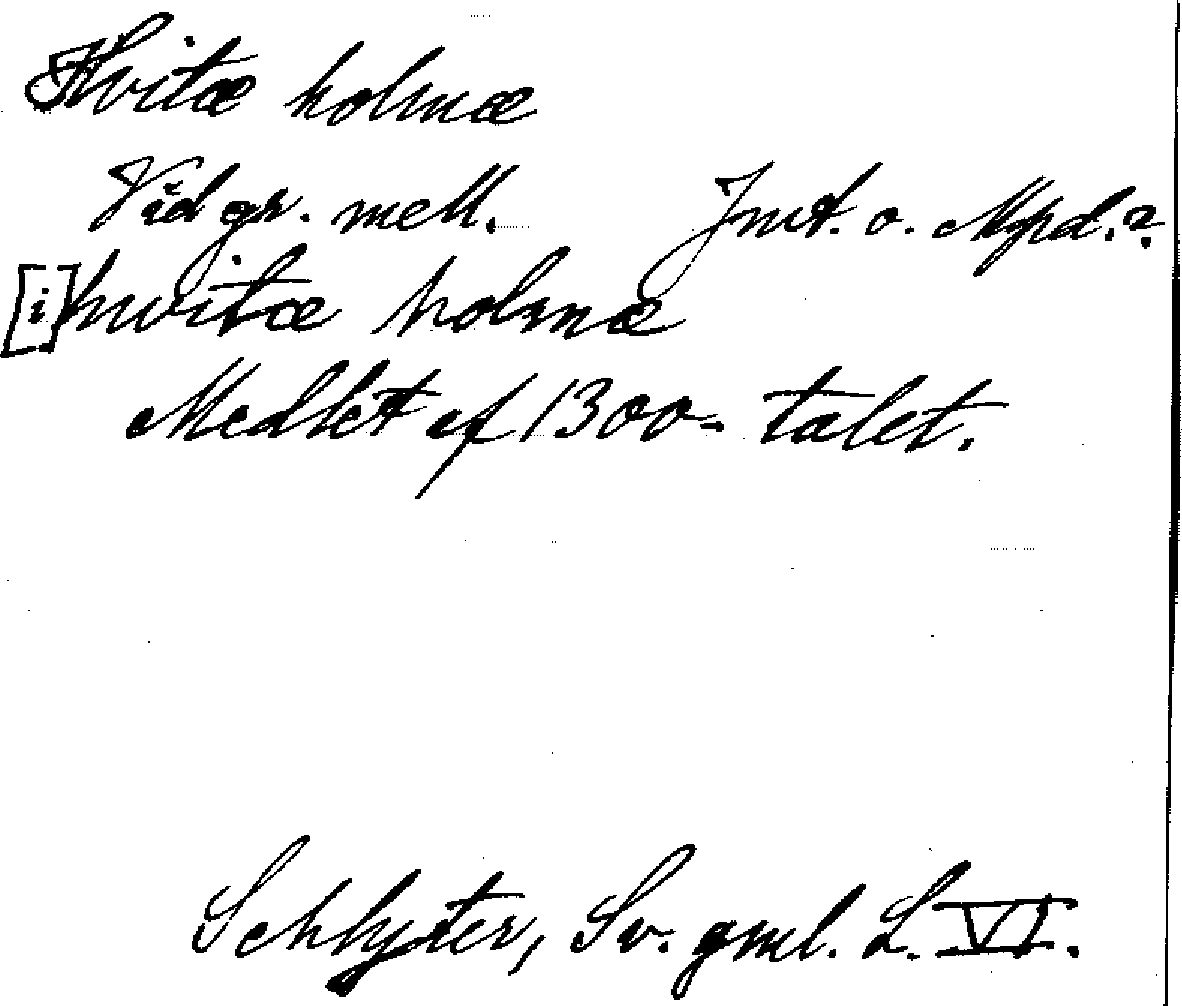 Hvitæ holmæ
Vid gr. mell. Jmt. o. Mpd.?
[i] huvitæ holmæ
Medlet af 1300-talet.
Schlyter, Sv. gml. L. VI.